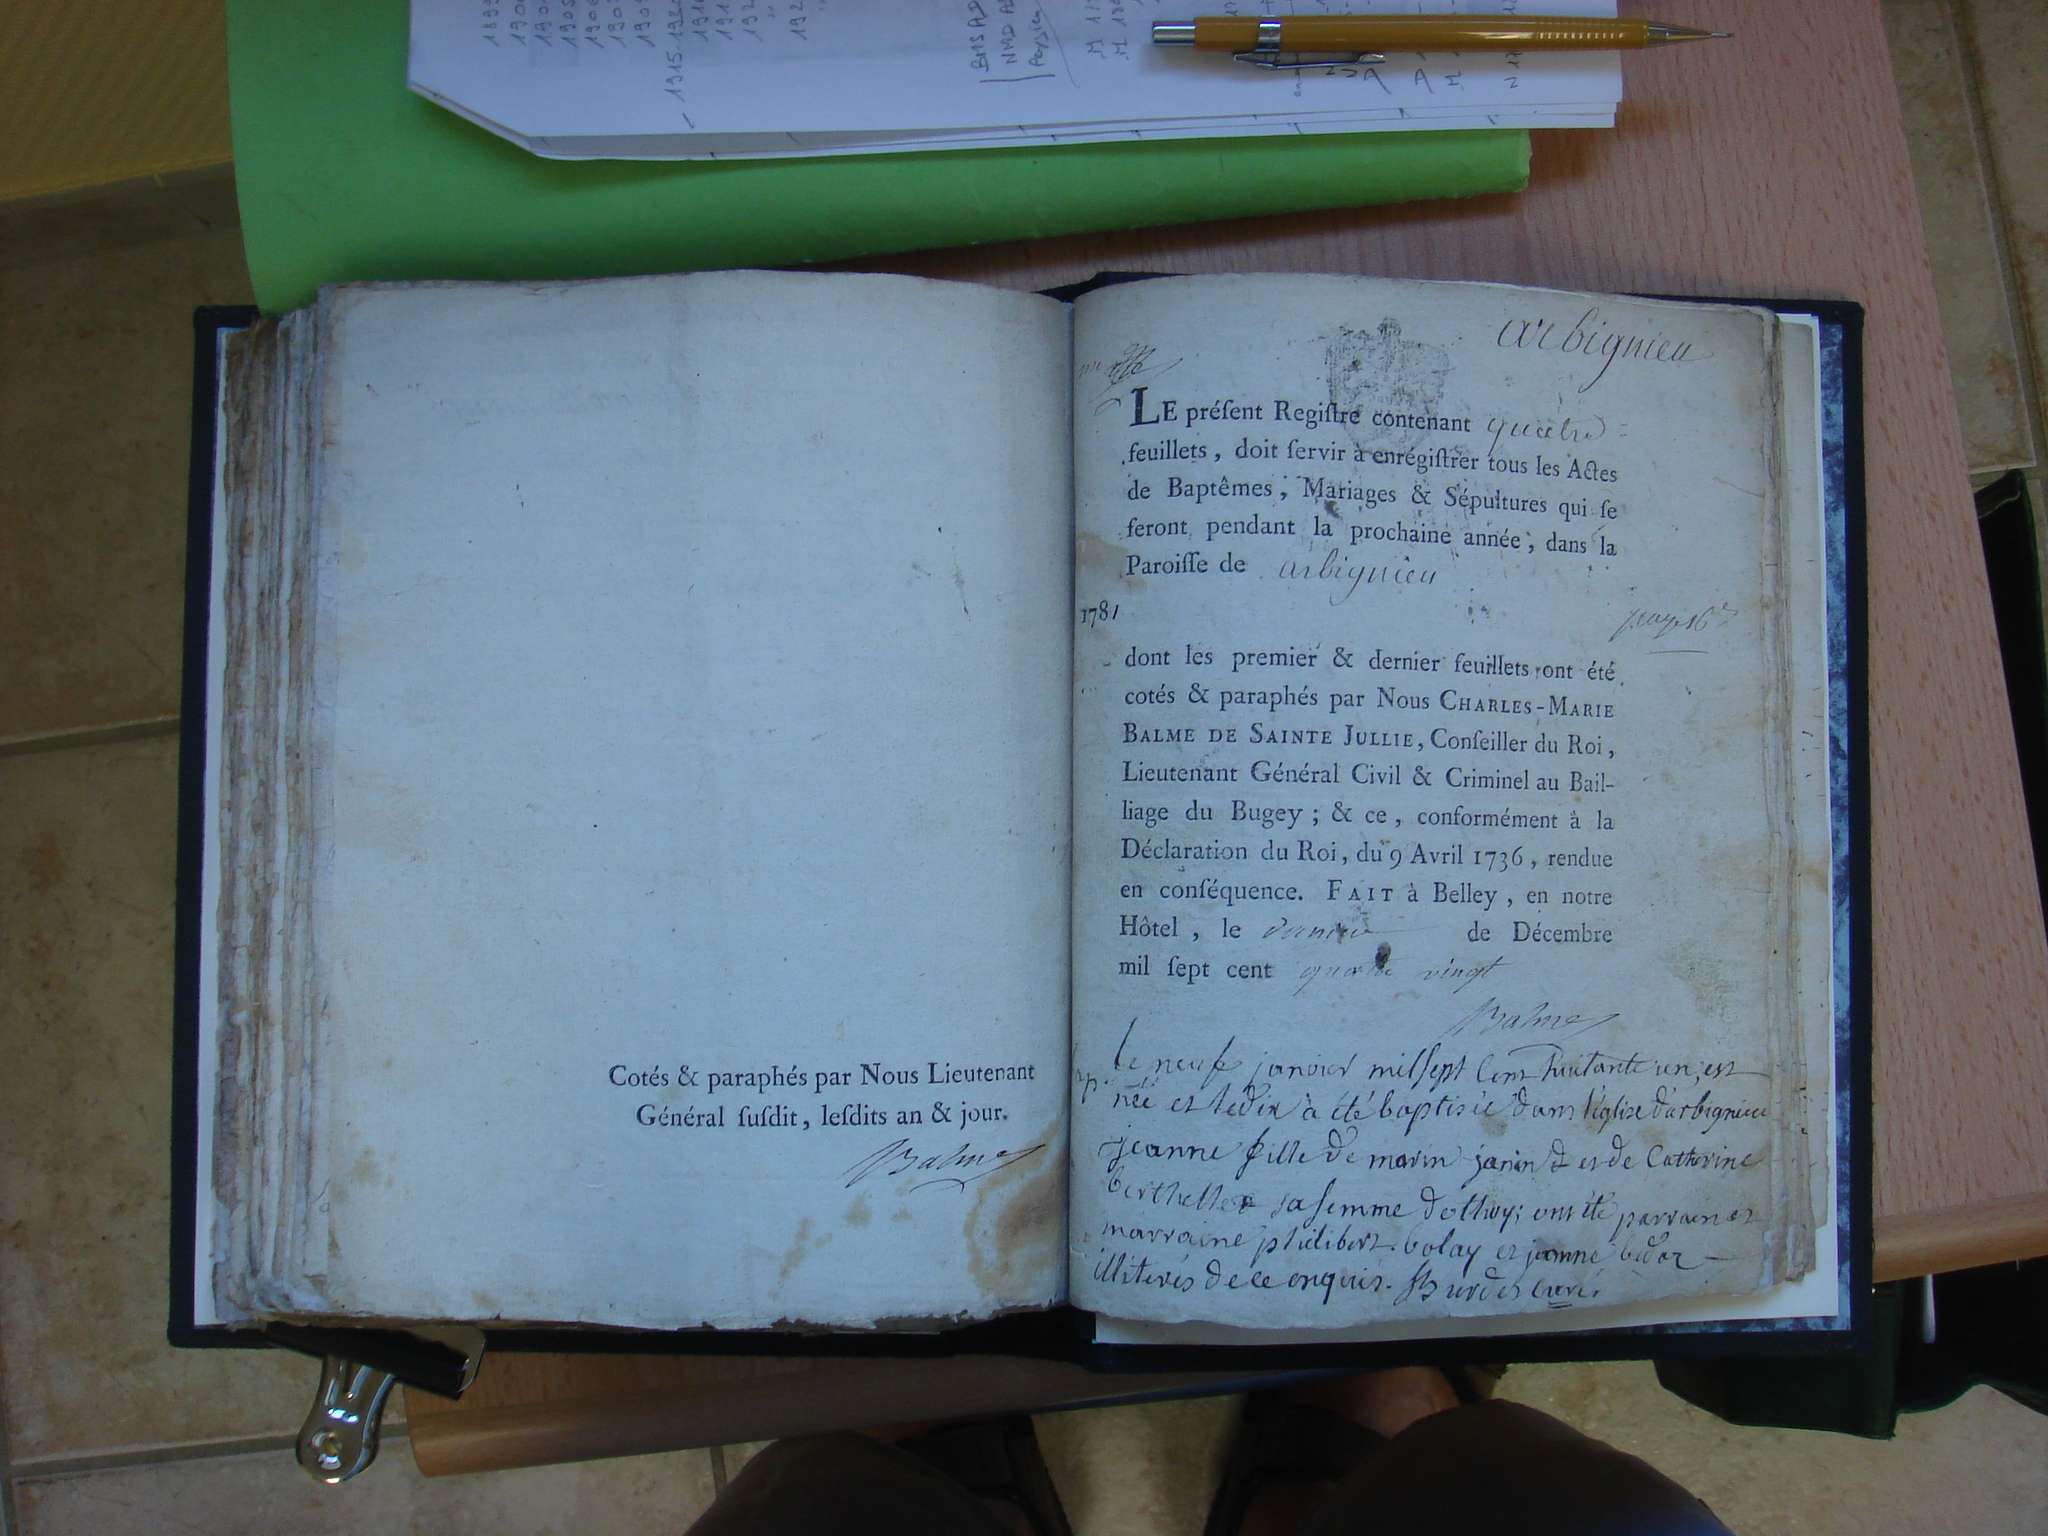 1899
1915-1920
BMS AD
NMD AD
Cotés & paraphés par Nous Lieutenant
Général ſuſdit, leſdits an & jour.
Balme
arbignieu
LE préſent Regiſtre contenant quatre
feuillets, doit ſervir à enrégiſtrer tous les Actes
de Baptêmes, Mariages & Sépultures qui ſe
feront pendant la prochaine année, dans la
Paroiſſe de arbignieu
1781
dont les premier & dernier feuillets ont été
cotés & paraphés par Nous CHARLES-MARIE
BALME DE SAINTE JULLIE, Conſeiller du Roi,
Lieutenant Général Civil & Criminel au Bail-
liage du Bugey; & ce, conformément à la
Déclaration du Roi, du 9 Avril 1736, rendue
en conſéquence. FAIT à Belley, en notre
Hôtel, le dernier de Décembre
mil ſept cent quatre vingt
Balme
le neuf janvier mil sept Cent huitante un, est
née et le dix a été baptisée dans l'église d'arbignieu
jeanne fille de marin janin et de Catherine
berthelle sa femme ont été parrain et
marraine philibert bolay et jeanne
illiterés de ce enquis. Burdet curé.